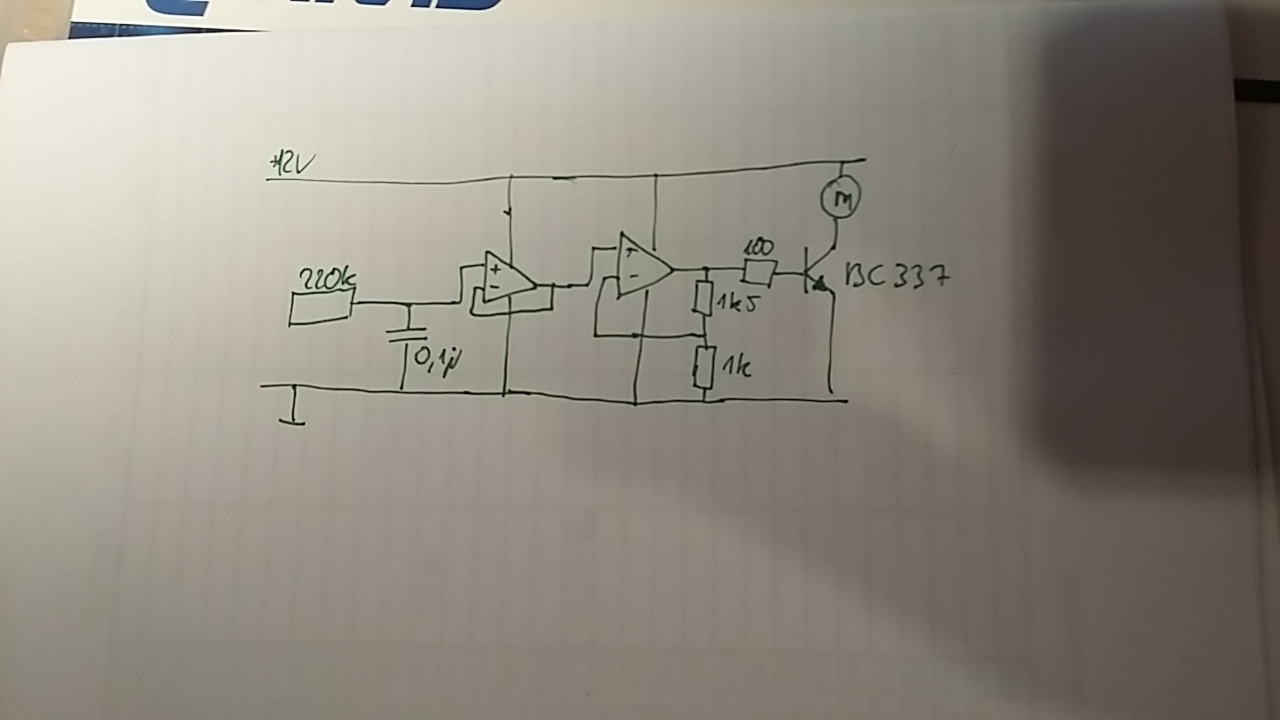 +12V
220k
0,1µ
+
-
+
-
100
1k5
1k
M
BC337